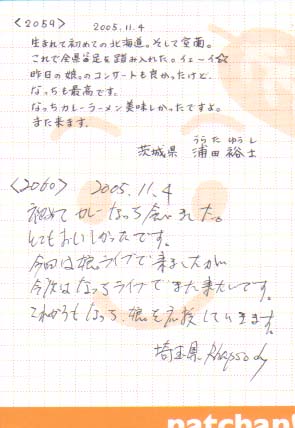 <2059> 2005.11.4
生まれて初めての北海道。そして室蘭。
これで全県皆足を踏み入れた。イェーイ☆
昨日の娘。のコンサートも良かったけど、
なっちも最高です。
なっちカレーラーメン美味しかったですよ。
また来ます。
うらた ゆうし
茨城県 浦田裕士
<2060> 2005.11.4
初めてカレーなっち食べました。
とてもおいしかったです。
今回は娘。ライブで来ましたが
今度はなっちライブでまた来たいです。
これからもなっち、娘。を応援していきます。
埼玉県 Rhapsody
natchan!